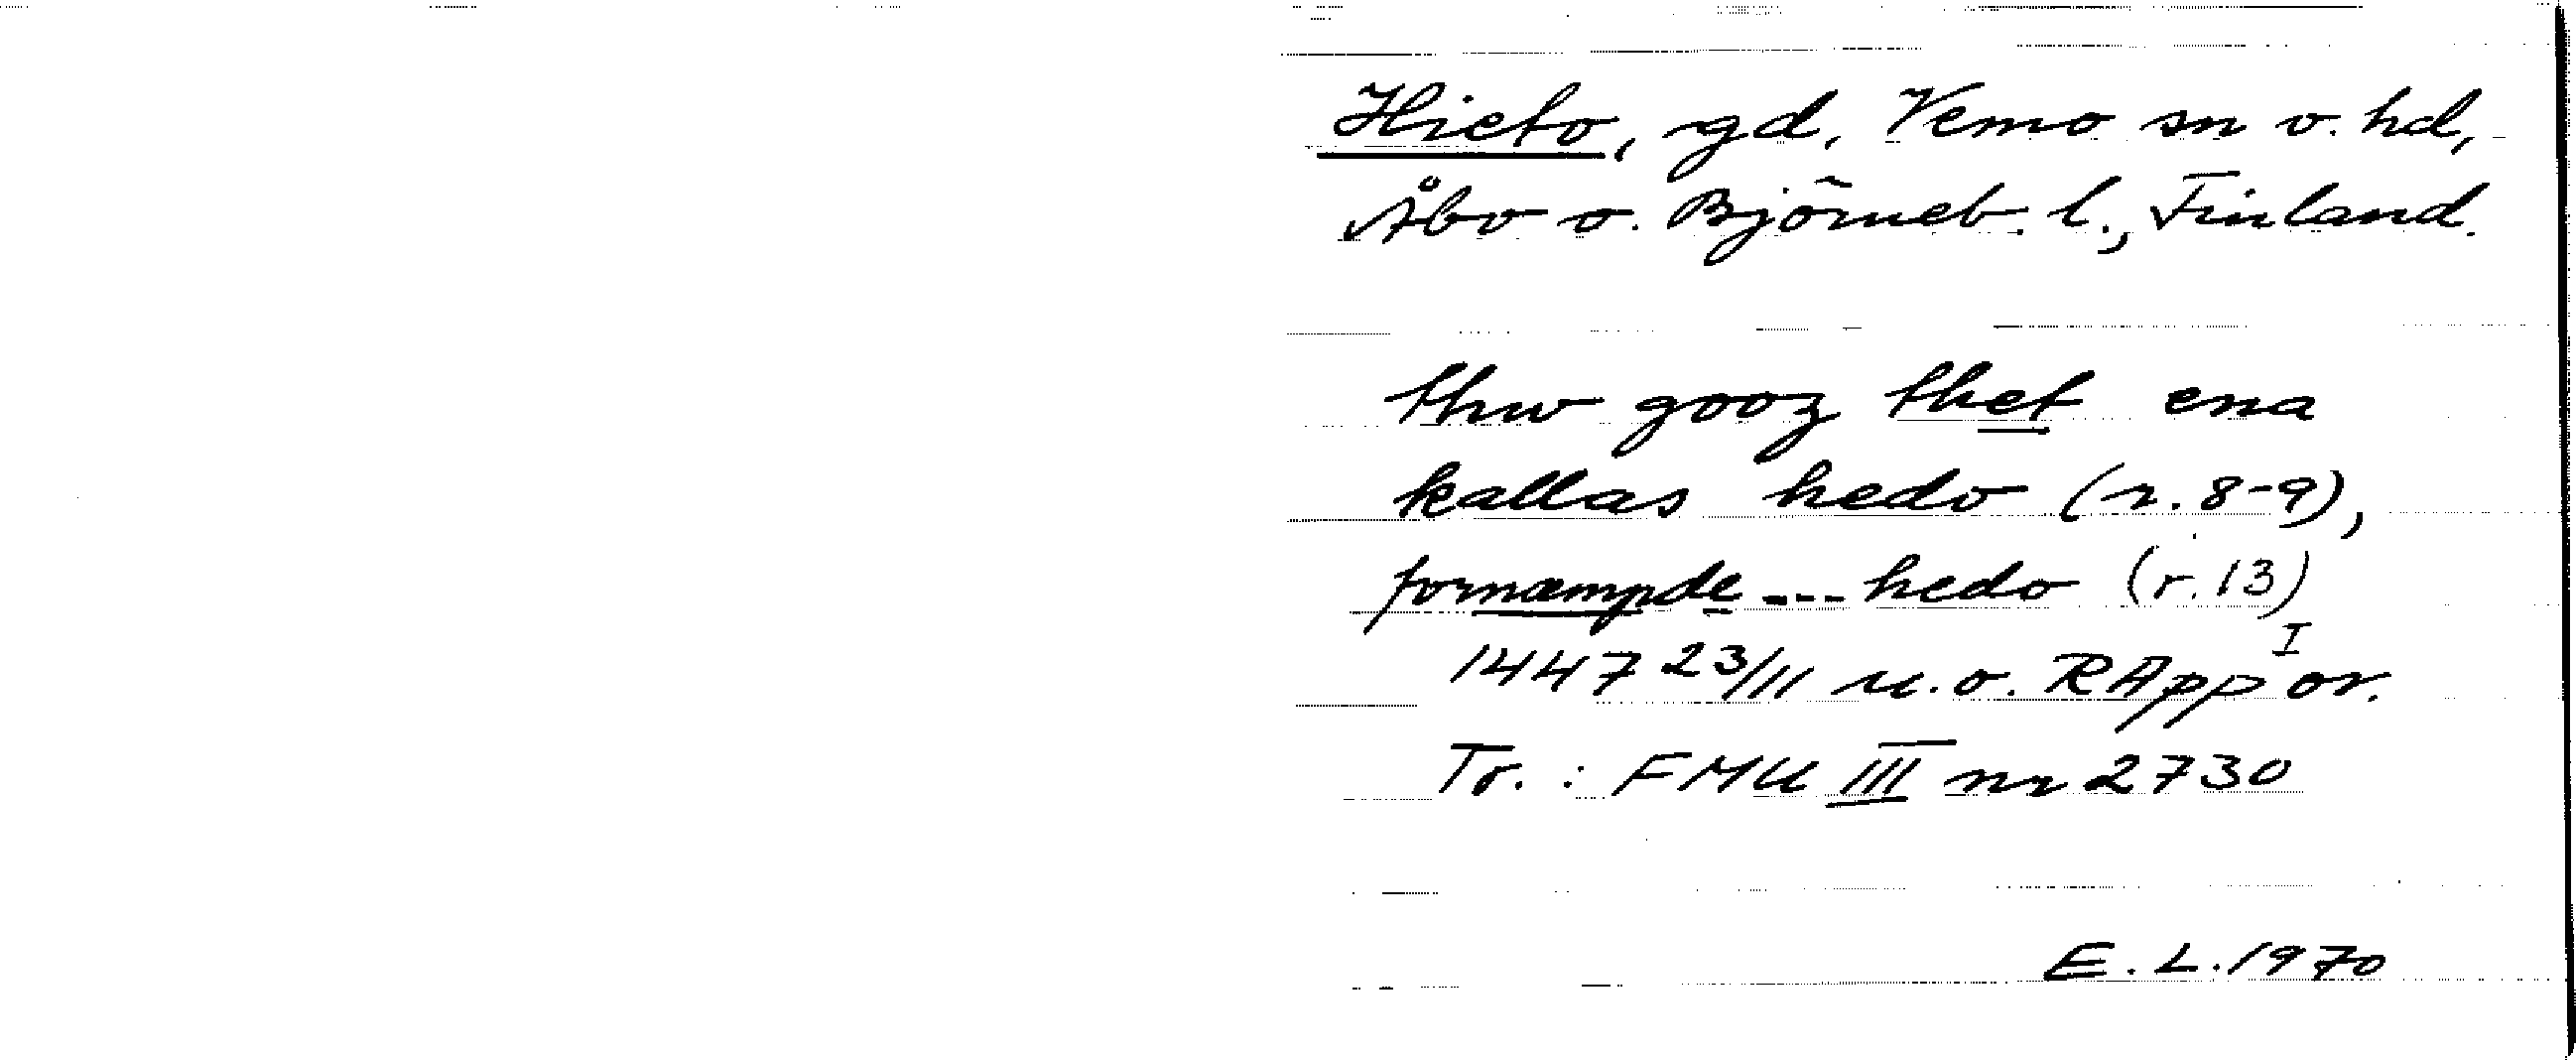 Hieto, gd, Vemo sn o. hd,
Åbo o. Björneb. l., Finland.
thw gooz thet ena
kallas hedo (r. 8-9),
fornæmpde --- hedo (r. 13)
1447 23/11 u.o. RApp I or.
Tr. : FMU III nr 2730
E. L. 1970